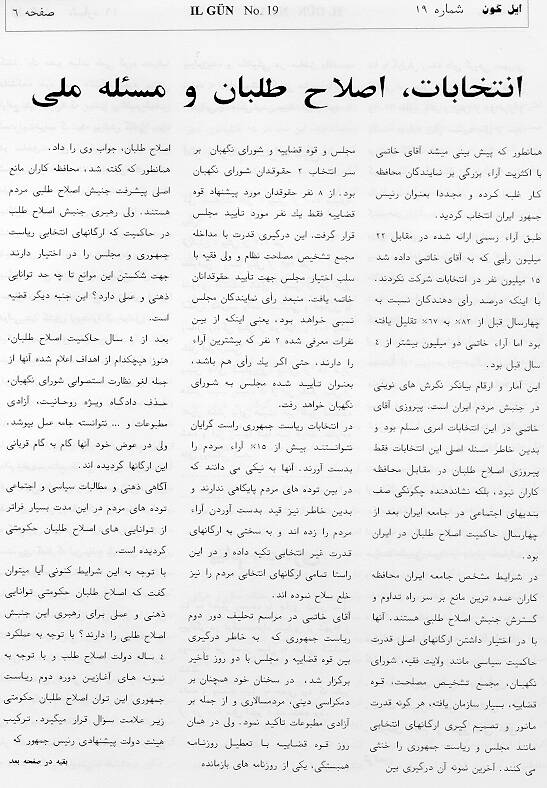 ایل گون شماره ۱۹
IL GÜN No. 19
صفحه ۶
انتخابات، اصلاح طلبان و مسئله ملی
همانطور که پیش بینی میشد آقای خاتمی
با اکثریت آراء بزرگی بر نمایندگان محافظه
کار غلبه کرده و مجددا بعنوان رئیس
جمهور ایران انتخاب گردید.
طبق آراء رسمی ارائه شده در مقابل ۲۲
میلیون رأیی که به آقای خاتمی داده شد
۱۵ میلیون نفر در انتخابات شرکت نکردند.
با اینکه درصد رأی دهندگان نسبت به
چهارسال قبل از ۸۲% به ۶۷% تقلیل یافته
بود اما آراء خاتمی دو میلیون بیشتر از ۴
سال قبل بود.
این آمار و ارقام بیانگر نگرش های نوینی
در جنبش مردم ایران است. پیروزی آقای
خاتمی در این انتخابات امری مسلم بود و
بدین خاطر مسئله اصلی این انتخابات فقط
پیروزی اصلاح طلبان در مقابل محافظه
کاران نبود، بلکه نشاندهنده چگونگی صف
بندیهای اجتماعی در جامعه ایران بعد از
چهارسال حاکمیت اصلاح طلبان در ایران
بود.
در شرایط مشخص جامعه ایران محافظه
کاران عمده ترین مانع بر سر راه تداوم و
گسترش جنبش اصلاح طلبی هستند. آنها
با در اختیار داشتن ارگانهای اصلی قدرت
حاکمیت سیاسی مانند ولایت فقیه، شورای
نگهبان، مجمع تشخیص مصلحت، قوه
قضاییه، بسیار سازمان یافته، هر گونه قدرت
مانور و تصمیم گیری ارگانهای انتخابی
مانند مجلس و ریاست جمهوری را خنثی
می کنند. آخرین نمونه آن درگیری بین
مجلس و قوه قضاییه و شورای نگهبان بر
سر انتخاب ۲ حقوقدان شورای نگهبان
بود. از ۸ نفر حقوقدان مورد پیشنهاد قوه
قضاییه فقط یك نفر مورد تأیید مجلس
قرار گرفت. این درگیری قدرت با مداخله
مجمع تشخیص مصلحت نظام و ولی فقیه با
سلب اختیار مجلس جهت تأیید حقوقدانان
خاتمه یافت. منبعد رأی نمایندگان مجلس
نسبی خواهد بود، یعنی اینکه از بین
نفرات معرفی شده ۲ نفر که بیشترین آراء
را دارند، حتی اگر یك رأی هم باشد،
بعنوان تأیید شده مجلس به شورای
نگهبان خواهد رفت.
در انتخابات ریاست جمهوری راست گرایان
نتوانستند بیش از ۱۵% آراء مردم را
بدست آورند. آنها به نیکی می دانند که
در بین توده های مردم پایگاهی ندارند و
بدین خاطر نیز قید بدست آوردن آراء
مردم را زده اند و به سختی به ارگانهای
قدرت غیر انتخابی تکیه داده و در این
راستا تمامی ارگانهای انتخابی مردم را نیز
خلع سلاح نموده اند.
آقای خاتمی در مراسم تحلیف دور دوم
ریاست جمهوری که به خاطر درگیری
بین قوه قضاییه و مجلس با دو روز تأخیر
برگزار شد، در سخنان خود همچنان بر
دمکراسی دینی، مردمسالاری و از جمله بر
آزادی مطبوعات تاکید نمود. ولی در همان
روز قوه قضاییه با تعطیل روزنامه
همبستگی، یکی از روزنامه های بازمانده
اصلاح طلبان، جواب وی را داد.
همانطور که گفته شد، محافظه کاران مانع
اصلی پیشرفت جنبش اصلاح طلبی مردم
هستند. ولی رهبری جنبش اصلاح طلب
در حاکمیت که ارگانهای انتخابی ریاست
جمهوری و مجلس را در اختیار دارند
جهت شکستن این موانع تا چه حد توانایی
ذهنی و عملی دارد؟ این جنبه دیگر قضیه
است.
بعد از ۴ سال حاکمیت اصلاح طلبان،
هنوز هیچکدام از اهداف اعلام شده آنها از
جمله لغو نظارت استصوابی شورای نگهبان،
حذف دادگاه ویژه روحانیت، آزادی
مطبوعات و ... نتوانسته جامه عمل بپوشد،
ولی در عوض خود آنها گام به گام قربانی
این ارگانها گردیده اند.
آگاهی ذهنی و مطالبات سیاسی و اجتماعی
توده های مردم در این مدت بسیار فراتر
از توانایی های اصلاح طلبان حکومتی
گردیده است.
با توجه به این شرایط کنونی آیا میتوان
گفت که اصلاح طلبان حکومتی توانایی
ذهنی و عملی برای رهبری این جنبش
اصلاح طلبی را دارند؟ با توجه به عملکرد
۴ ساله دولت اصلاح طلب و با توجه به
نمونه های آغازین دوره دوم ریاست
جمهوری این توان اصلاح طلبان حکومتی
زیر علامت سوال قرار میگیرد. ترکیب
هیئت دولت پیشنهادی رئیس جمهور که
بقیه در صفحه بعد